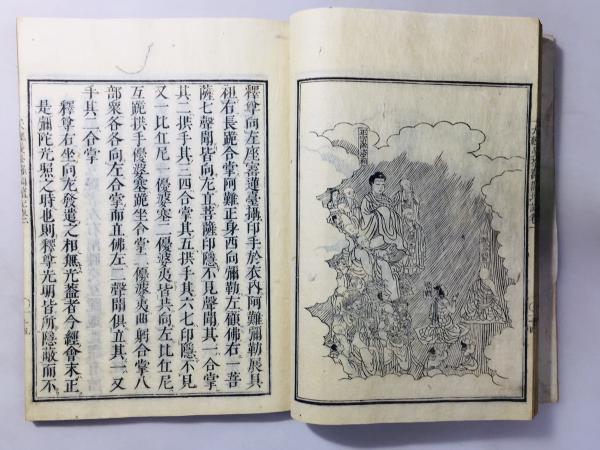 釋尊向左座青蓮臺攝印手於衣内阿難彌勒展具
袒右長跪合掌阿難正身西向彌勒左顧佛右一菩
薩七聲聞皆向左立菩薩印隱不見聲聞其一合掌
其二拱手其三四合掌其五拱手其六七印隱不見
又一比丘尼一優婆塞二優婆夷皆共向左比丘尼
互跪拱手優婆塞跪坐合掌一優婆夷曲躬合掌八
部衆各各向左合掌而直佛左二聲聞俱立其一叉
手其二合掌
釋尊右坐向左發遣之相無光蓋者今經會末正
是彌陀光照之時也則釋尊光明皆所隱蔽而不